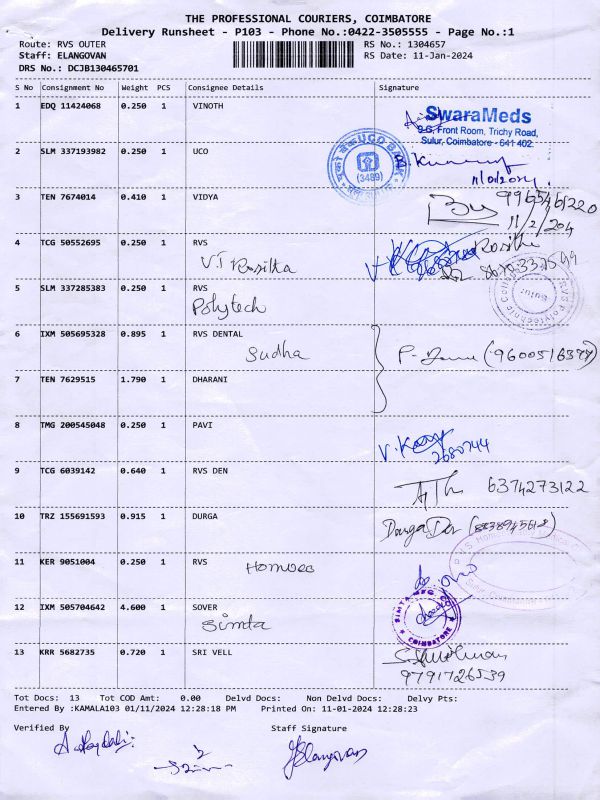 THE PROFESSIONAL COURIERS, COIMBATORE
Delivery Runsheet - P103 - Phone No.:0422-3505555 - Page No.:1
Route: RVS OUTER RS No.: 1304657
Staff: ELANGOVAN RS Date: 11-Jan-2024
DRS No.: DCJB130465701
S No Consignment No Weight PCS Consignee Details Signature
1 EDQ 11424068 0.250 1 VINOTH
SwaraMeds
Front Room, Trichy Road,
Sulur, Coimbatore - 641 402.
2 SLM 337193982 0.250 1 UCO
UCO BANK
(3489)
3 TEN 7674014 0.410 1 VIDYA
11/2/204
4 TCG 50552695 0.250 1 RVS
5 SLM 337285383 0.250 1 RVS
Polytech
6 IXM 505695328 0.895 1 RVS DENTAL
Sudha
7 TEN 7629515 1.790 1 DHARANI
8 TMG 200545048 0.250 1 PAVI
2680744
9 TCG 6039142 0.640 1 RVS DEN
6374273122
10 TRZ 155691593 0.915 1 DURGA
Durga Devi
11 KER 9051004 0.250 1 RVS
Homoeo
12 IXM 505704642 4.600 1 SOVER
Simta
SIMTA
COIMBATORE
13 KRR 5682735 0.720 1 SRI VELL
9791726539
Tot Docs: 13 Tot COD Amt: 0.00 Delvd Docs: Non Delvd Docs: Delvy Pts:
Entered By :KAMALA103 01/11/2024 12:28:18 PM Printed On: 11-01-2024 12:28:23
Verified By Staff Signature
Elangovan